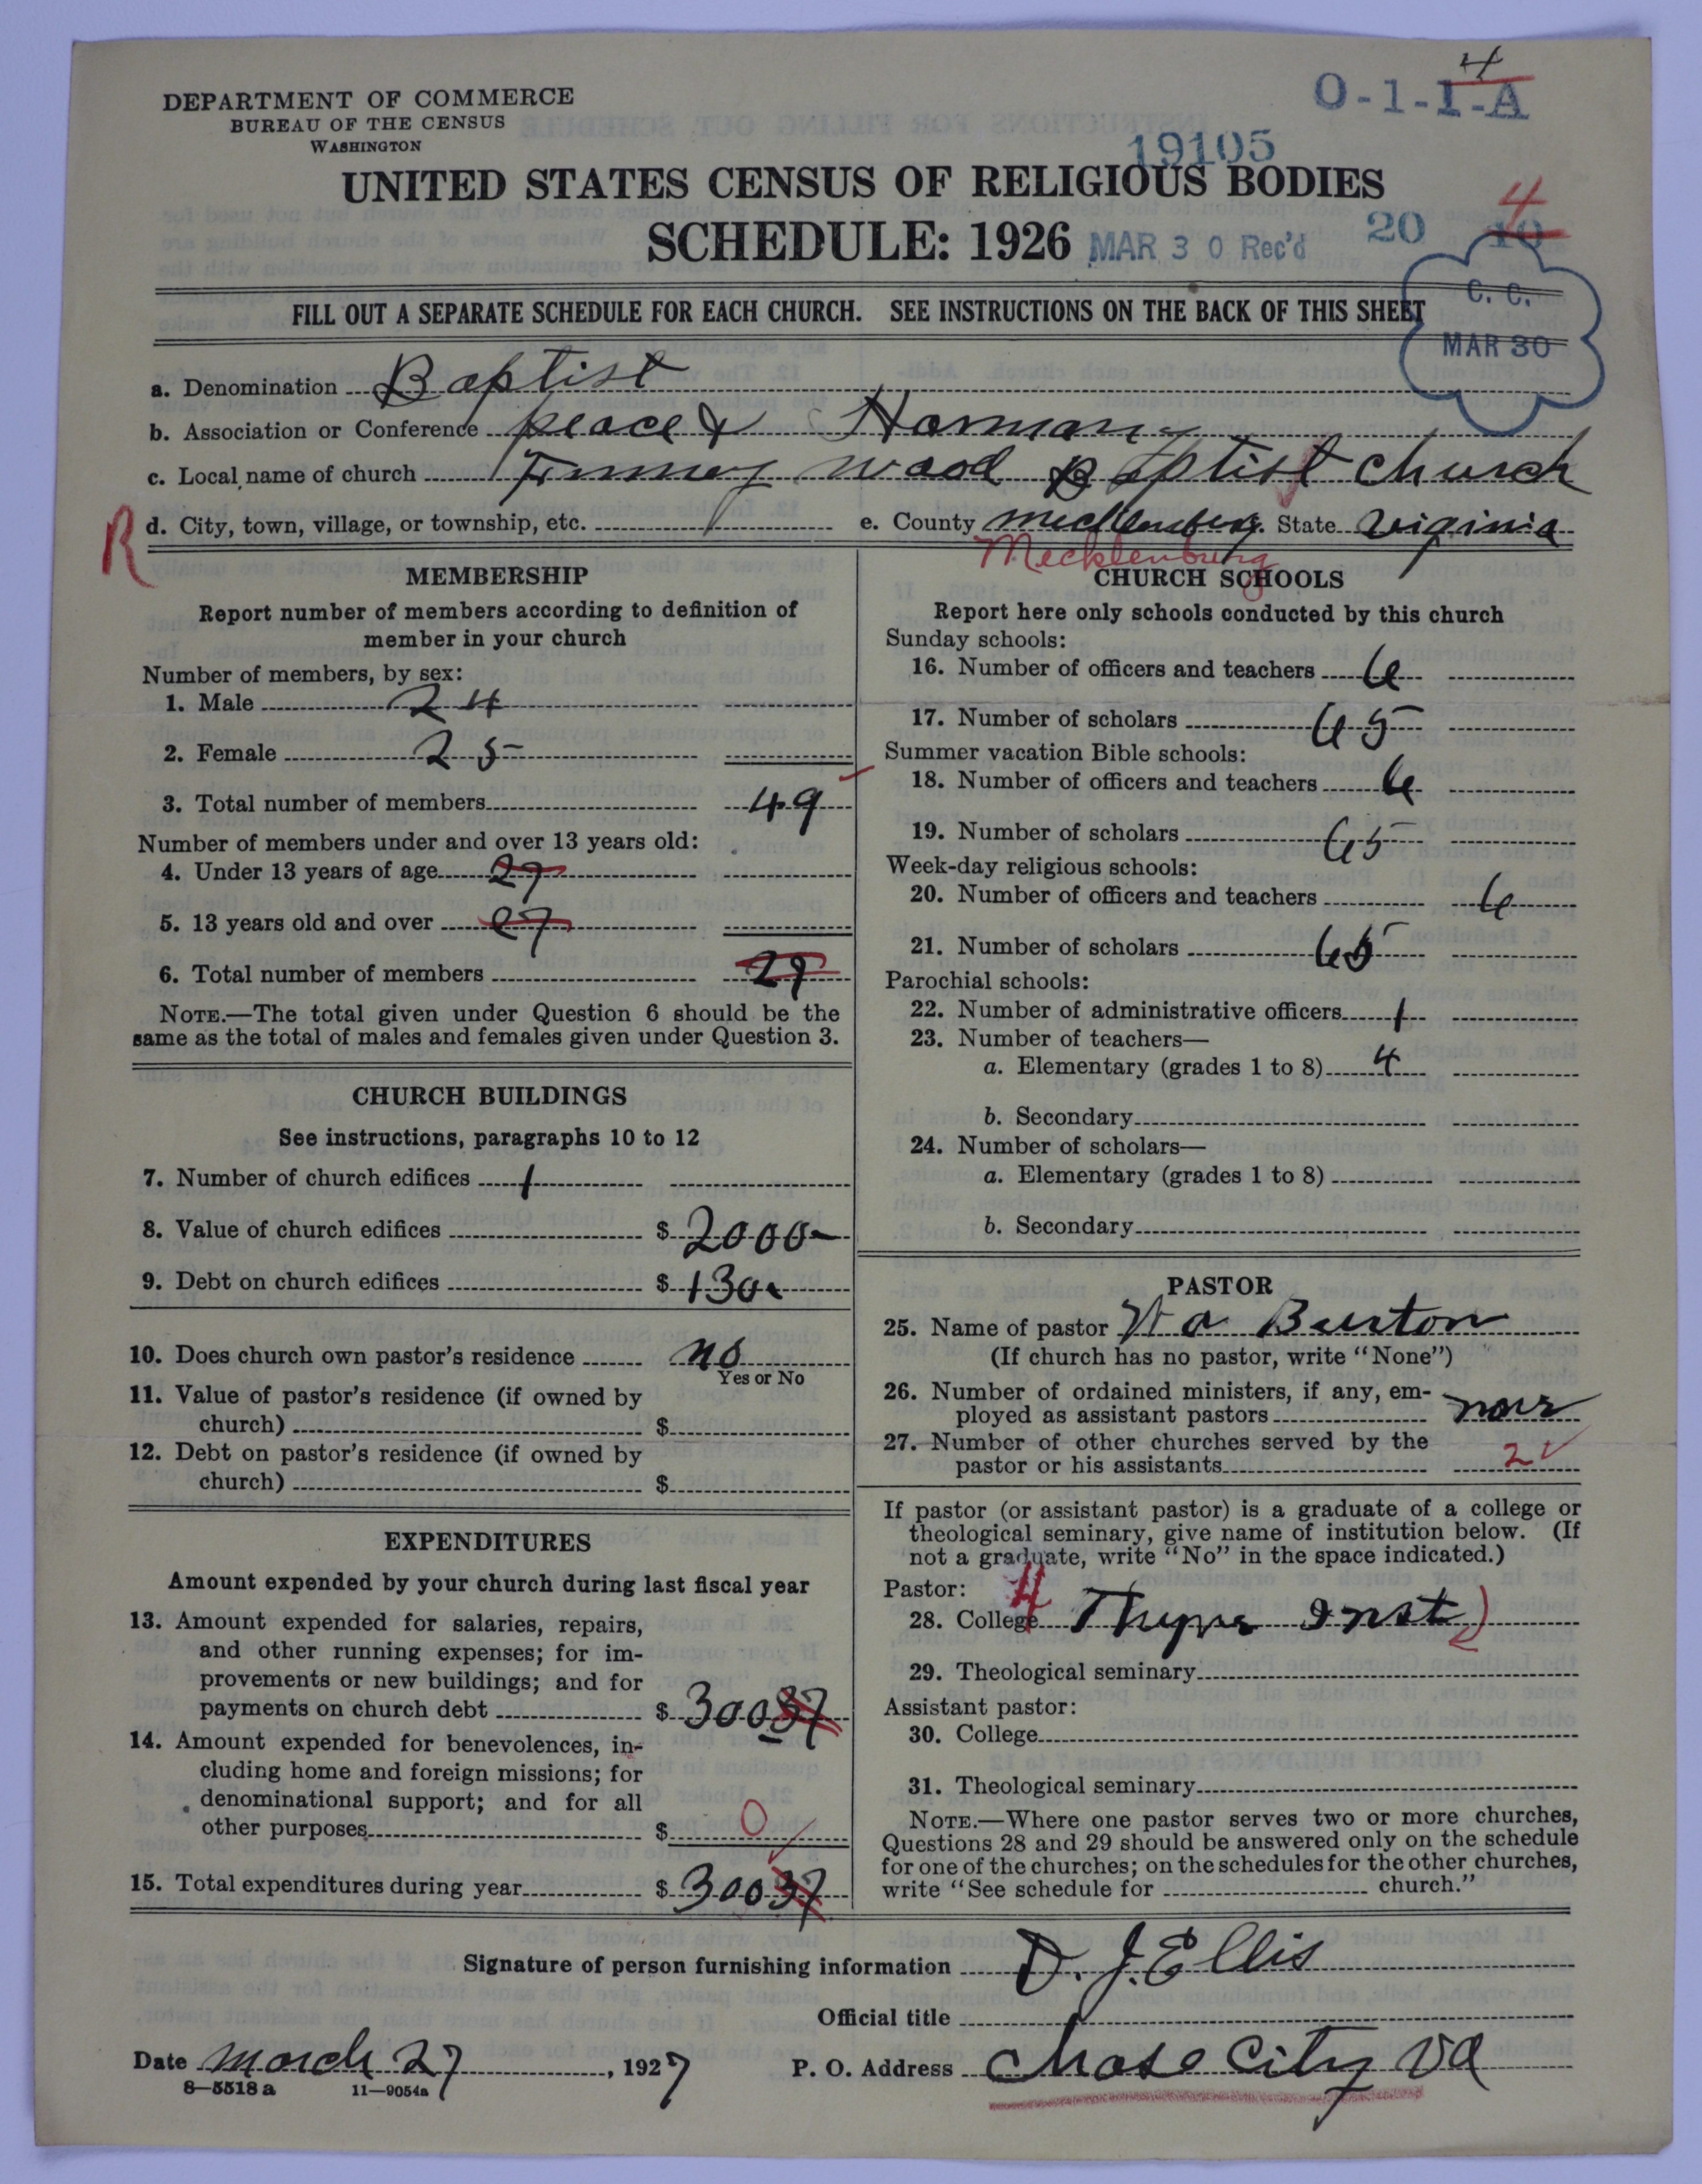 DEPARTMENT OF COMMERCE
BUREAU OF THE CENSUS
WASHINGTON
4
O-1-1-A
19105
UNITED STATES CENSUS OF RELIGIOUS BODIES
SCHEDULE: 1926 MAR 30 Rec'd 20 10 4
C. C.
MAR 30
FILL OUT A SEPARATE SCHEDULE FOR EACH CHURCH. SEE INSTRUCTIONS ON THE BACK OF THIS SHEET
a. Denomination Baptist
b. Association or Conference peace & Harmany
c. Local name of church wood Baptist church
R
d. City, town, village, or township, etc. e. County State Virginia
Mecklenburg
MEMBERSHIP
Report number of members according to definition of
member in your church
Number of members, by sex:
1. Male 24
2. Female 25
3. Total number of members 49
Number of members under and over 13 years old:
4. Under 13 years of age 27
5. 13 years old and over 27
6. Total number of members 27
NOTE.—The total given under Question 6 should be the
same as the total of males and females given under Question 3.
CHURCH BUILDINGS
See instructions, paragraphs 10 to 12
7. Number of church edifices 1
8. Value of church edifices $ 2000-
9. Debt on church edifices $ 130
10. Does church own pastor's residence no
Yes or No
11. Value of pastor's residence (if owned by
church) $
12. Debt on pastor's residence (if owned by
church) $
EXPENDITURES
Amount expended by your church during last fiscal year
13. Amount expended for salaries, repairs,
and other running expenses; for im-
provements or new buildings; and for
payments on church debt $ 30037
14. Amount expended for benevolences, in-
cluding home and foreign missions; for
denominational support; and for all
other purposes $ 0
15. Total expenditures during year $ 30037
CHURCH SCHOOLS
Report here only schools conducted by this church
Sunday schools:
16. Number of officers and teachers 6
17. Number of scholars 65
Summer vacation Bible schools:
18. Number of officers and teachers 6
19. Number of scholars 65
Week-day religious schools:
20. Number of officers and teachers 6
21. Number of scholars 65
Parochial schools:
22. Number of administrative officers 1
23. Number of teachers—
a. Elementary (grades 1 to 8) 4
b. Secondary
24. Number of scholars—
a. Elementary (grades 1 to 8)
b. Secondary
PASTOR
25. Name of pastor W a Burton
(If church has no pastor, write "None")
26. Number of ordained ministers, if any, em-
ployed as assistant pastors
27. Number of other churches served by the
pastor or his assistants 2
If pastor (or assistant pastor) is a graduate of a college or
theological seminary, give name of institution below. (If
not a graduate, write "No" in the space indicated.)
Pastor: H
28. College Thyne Inst
29. Theological seminary
Assistant pastor:
30. College
31. Theological seminary
NOTE.—Where one pastor serves two or more churches,
Questions 28 and 29 should be answered only on the schedule
for one of the churches; on the schedules for the other churches,
write "See schedule for church."
Signature of person furnishing information D. J. Ellis
Official title
Date march 27, 1927 P. O. Address Chase City Va
8—5518 a 11—9054a